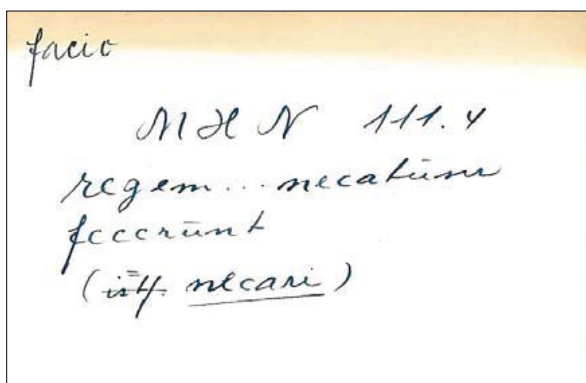 facio
MHN 111.4
regem... necatum
fecerunt
(necari)